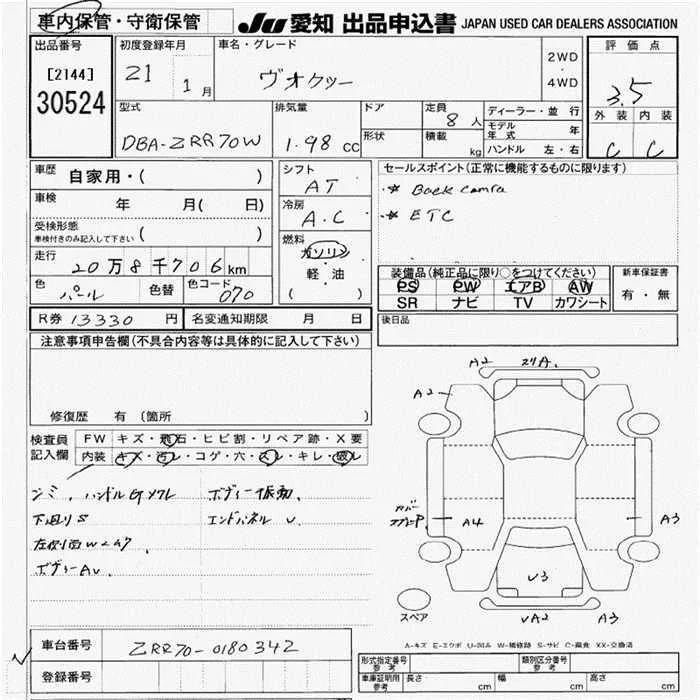 車内保管・守衛保管
JU 愛知 出品申込書 JAPAN USED CAR DEALERS ASSOCIATION
出品番号
[2144]
30524
初度登録年月
21 1月
車名・グレード
ヴオクシー
2WD
・
4WD
評価点
3.5
外装 内装
C C
型式
DBA-ZRR70W
排気量
1.98 cc
ドア
形状
定員
8人
積載
kg
ディーラー・並行
モデル年式 年
ハンドル 左・右
車歴
自家用・( )
車検
年 月( 日)
受検形態
車検付きのみ記入して下さい ( )
走行
20万8千706km
色
パール
色替
色コード
070
シフト
AT
冷房
A.C
燃料
ガソリン
軽・油
( )
セールスポイント(正常に機能するものに限ります)
* Back camra
* ETC
装備品(純正品に限り○をつけてください)
PS PW エアB AW
SR ナビ TV カワシート
新車保証書
有・無
後日品
R券 13330 円 名変通知期限 月 日
注意事項申告欄(不具合内容等は具体的に記入して下さい)
修復歴 有(箇所 )
検査員記入欄
FW キズ・飛石・ヒビ割・リペア跡・X要
内装 キズ・汚レ・コゲ・穴・スレ・キレ・破レ
シミ、ハンドル
ボディー振動
下廻りS
エンドパネル U
左側面
ボディーAU
A2
A.
A2
A4
A3
U3
UA2
A3
スペア
A-キズ E-エクボ U-凹み W-補修跡 S-サビ C-腐食 XX-交換済
車台番号 ZRR70-0180342
登録番号
型式指定番号 参考
類別区分番号 参考
車庫証明用 参考 長さ cm 幅 cm 高さ cm